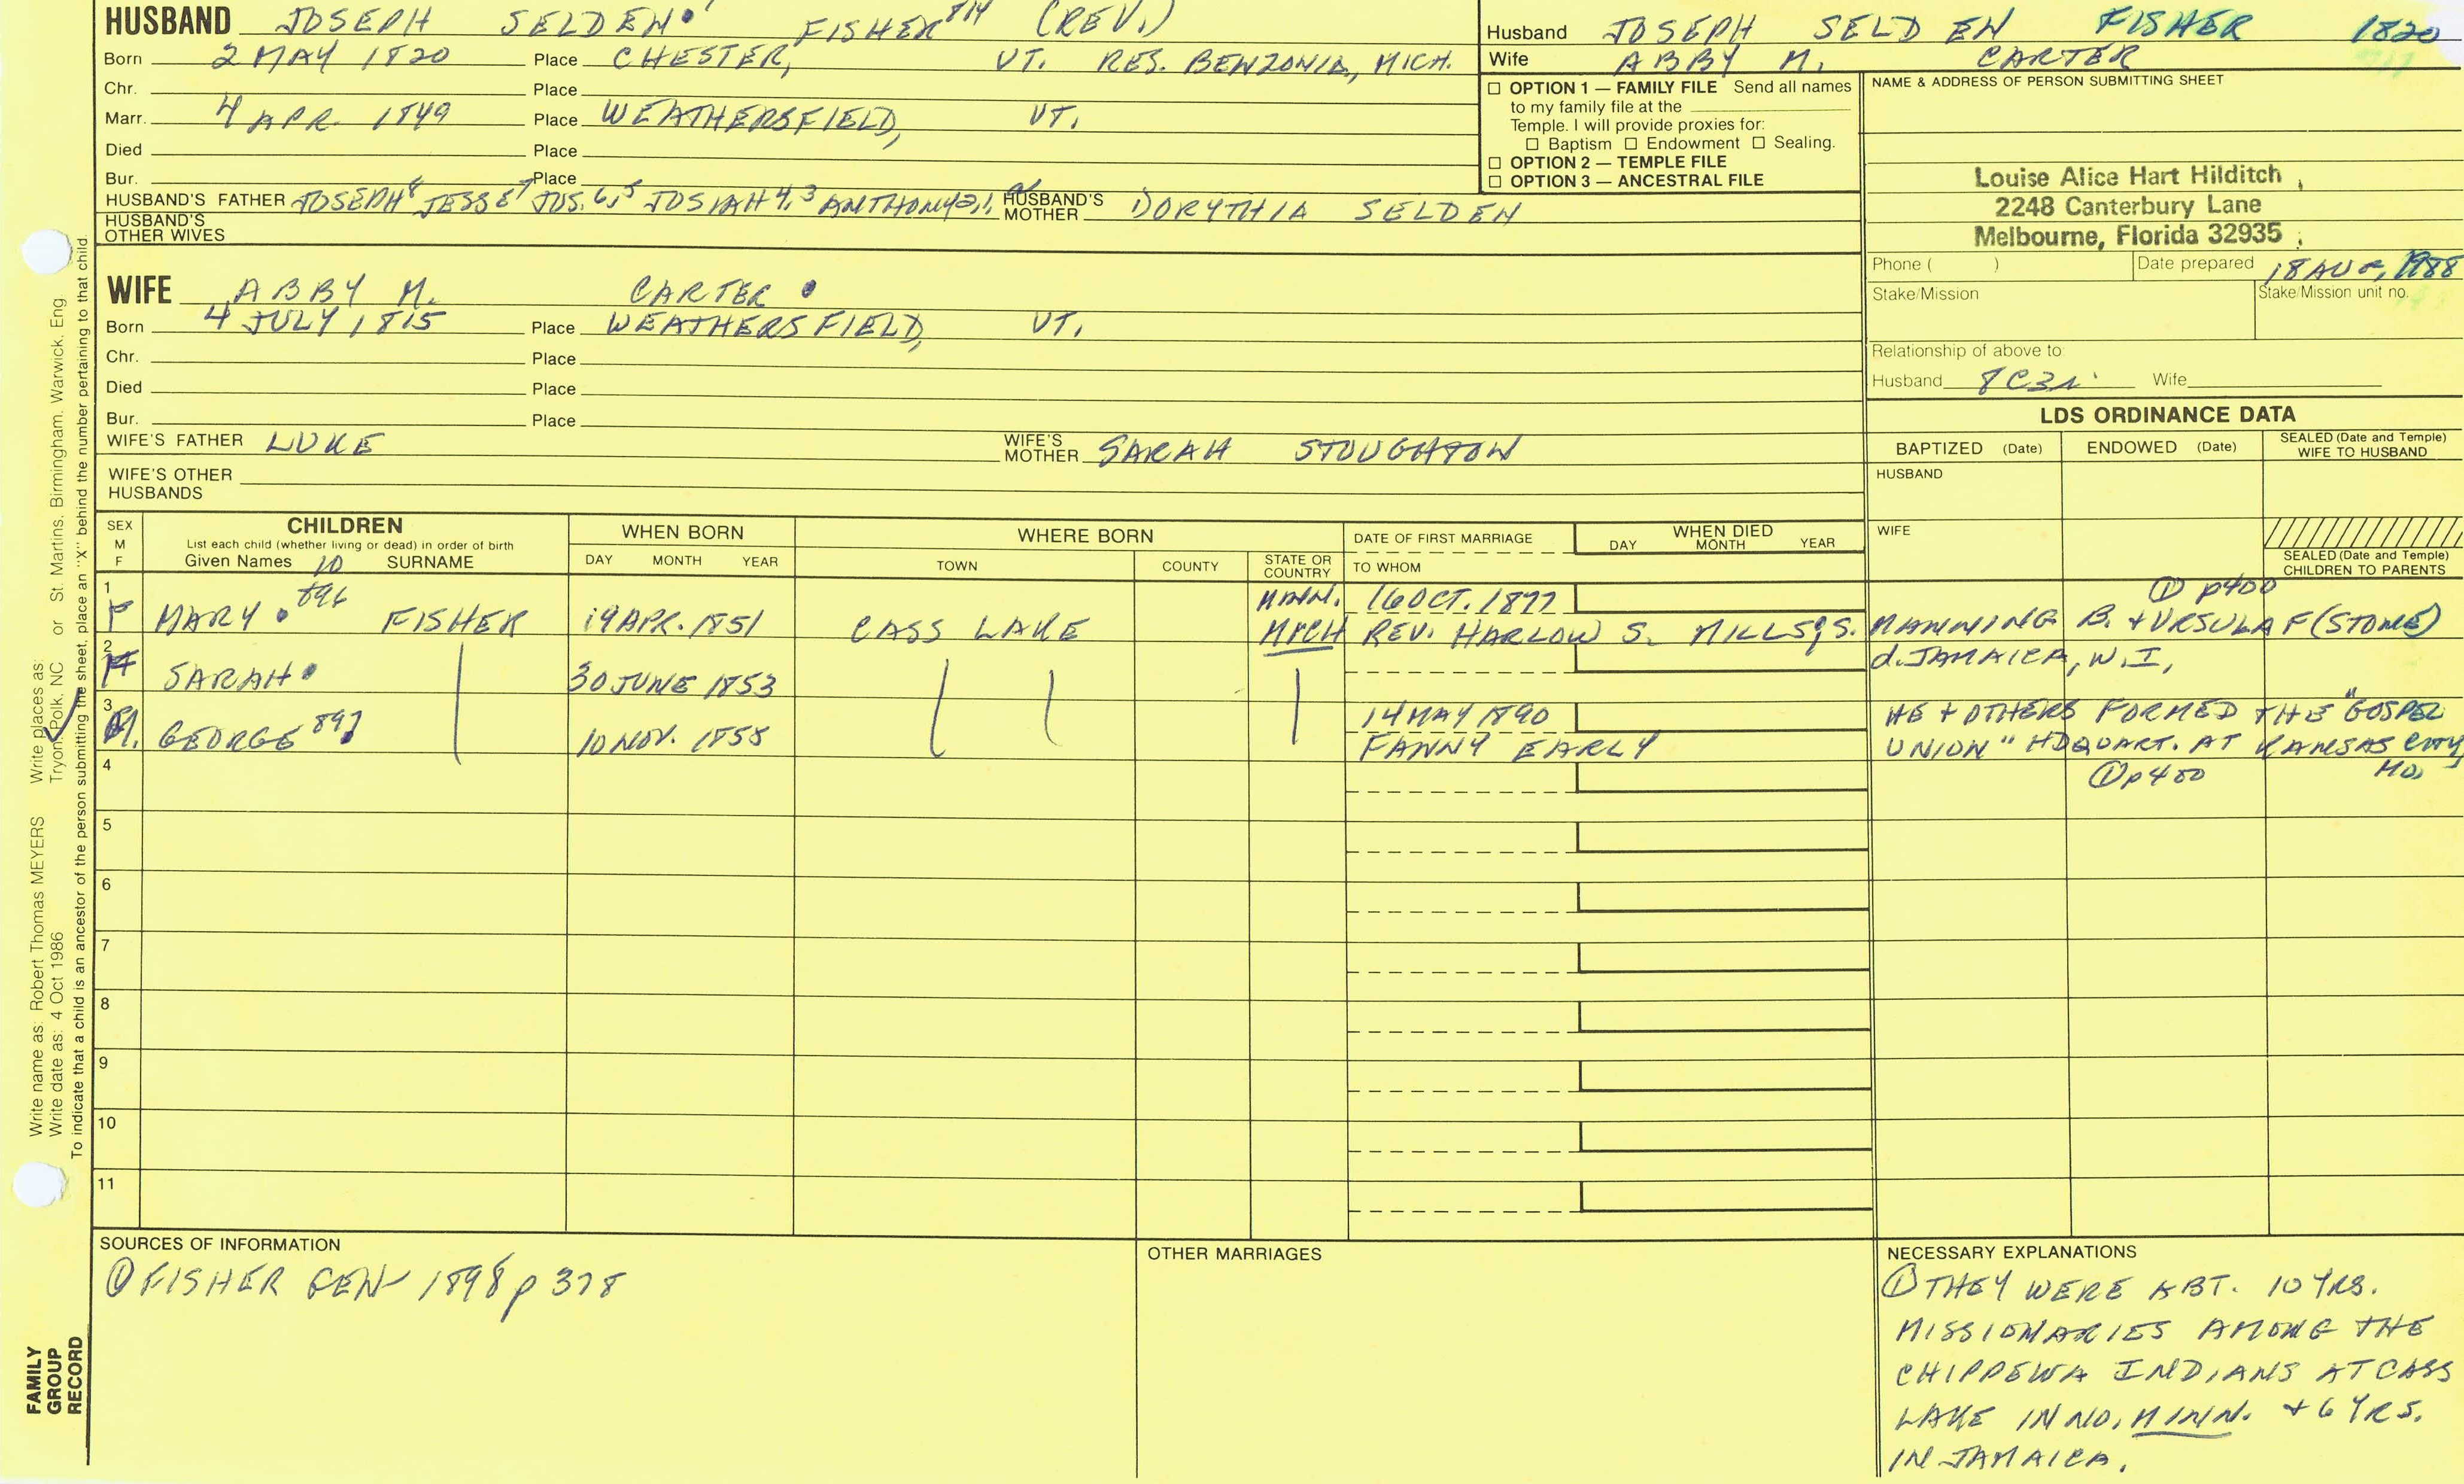 HUSBAND JOSEPH SELDEN FISHER 814 (REV.)
Born 2 MAY 1820 Place CHESTER, VT. RES. BENZONIA, MICH.
Chr. Place
Marr. 4 APR. 1849 Place WEATHERSFIELD, VT.
Died Place
Bur. Place
HUSBAND'S FATHER JOSEPH 8 JESSE 7 JOS. 6,5 JOSIAH 4,3 ANTHONY 2,1 HUSBAND'S MOTHER DORYTHIA SELDEN
HUSBAND'S OTHER WIVES
WIFE ABBY M. CARTER
Born 4 JULY 1815 Place WEATHERSFIELD, VT.
Chr. Place
Died Place
Bur. Place
WIFE'S FATHER LUKE WIFE'S MOTHER SARAH STOUGHTON
WIFE'S OTHER HUSBANDS
Husband JOSEPH SELDEN FISHER 1820
Wife ABBY M. CARTER
☐ OPTION 1 — FAMILY FILE Send all names
to my family file at the
Temple. I will provide proxies for:
☐ Baptism ☐ Endowment ☐ Sealing.
☐ OPTION 2 — TEMPLE FILE
☐ OPTION 3 — ANCESTRAL FILE
NAME & ADDRESS OF PERSON SUBMITTING SHEET
Louise Alice Hart Hilditch
2248 Canterbury Lane
Melbourne, Florida 32935
Phone ( ) Date prepared 18 AUG, 1988
Stake/Mission Stake/Mission unit no.
Relationship of above to
Husband 8C3R Wife
LDS ORDINANCE DATA
BAPTIZED (Date) ENDOWED (Date) SEALED (Date and Temple) WIFE TO HUSBAND
HUSBAND
WIFE
SEALED (Date and Temple) CHILDREN TO PARENTS
SEX M F CHILDREN WHEN BORN WHERE BORN DATE OF FIRST MARRIAGE WHEN DIED
List each child (whether living or dead) in order of birth
Given Names 10 SURNAME DAY MONTH YEAR TOWN COUNTY STATE OR COUNTRY TO WHOM DAY MONTH YEAR
1 F MARY 896 FISHER 19 APR. 1851 CASS LAKE MINN. MICH 16 OCT. 1877 ① p400
REV. HARLOW S. MILLS; S. MANNING B. + URSULA F (STONE)
2 F SARAH 30 JUNE 1853 d. JAMAICA, W.I,
3 M. GEORGE 897 10 NOV. 1855 14 MAY 1890 HE + OTHERS FORMED THE "GOSPEL
FANNY EARLY UNION" HDQUART. AT KANSAS CITY,
4 ① p400 MO.
5
6
7
8
9
10
11
SOURCES OF INFORMATION
① FISHER GEN 1898 p 378
OTHER MARRIAGES
NECESSARY EXPLANATIONS
① THEY WERE ABT. 10 YRS.
MISSIONARIES AMONG THE
CHIPPEWA INDIANS AT CASS
LAKE IN NO. MINN. + 6 YRS.
IN JAMAICA.
FAMILY
GROUP
RECORD
Write name as: Robert Thomas MEYERS Write places as:
Write date as: 4 Oct 1986 Tryon, Polk, NC or St. Martins, Birmingham, Warwick, Eng
To indicate that a child is an ancestor of the person submitting the sheet, place an "X" behind the number pertaining to that child.